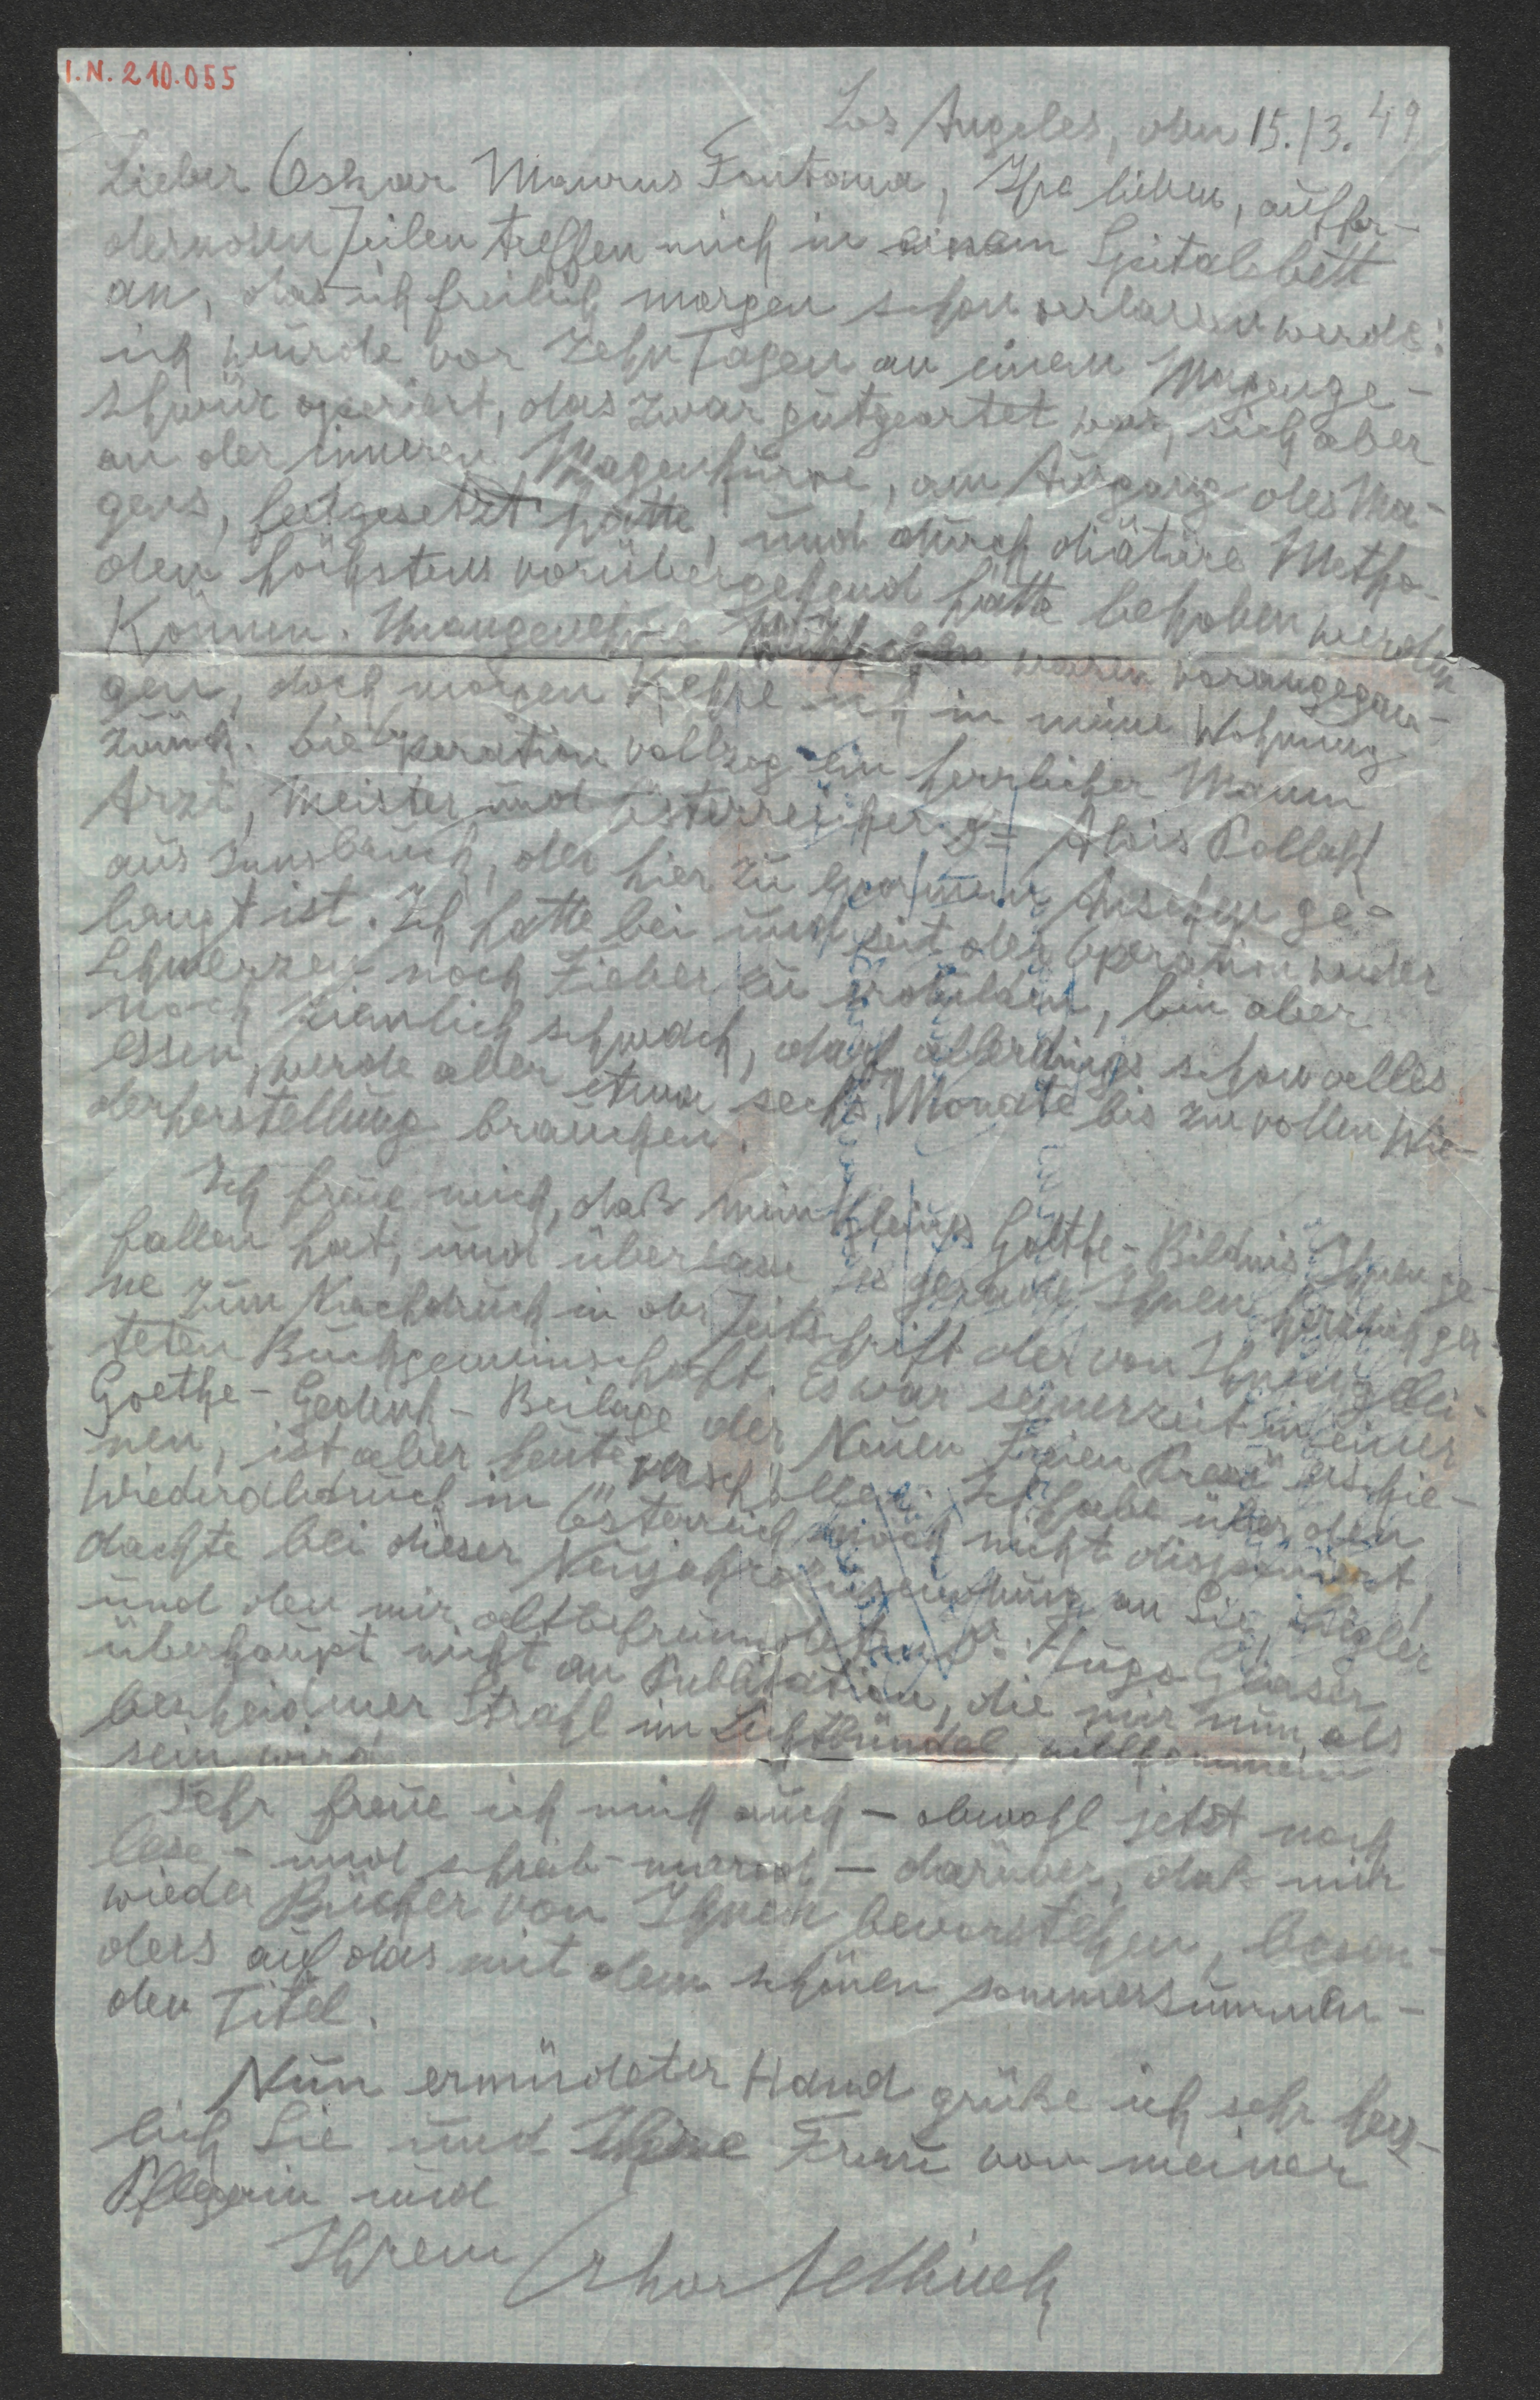 I.N. 210.055
Los Angeles, den 15./3. 49
Lieber Oskar Maurus Fontana, Ihre lieben, auffor-
dernden Zeilen treffen mich in einem Spitalsbett
an, das ich freilich morgen schon verlassen werde:
ich wurde vor zehn Tagen an einem Magenge-
schwür operiert, das zwar gutgeartet war, sich aber
an der inneren Magenkurve, am Ausgang des Ma-
gens, festgesetzt hatte, und durch diätäre Metho-
den höchstens vorübergehend hätte behoben werden
können. Unangenehme waren vorangegan-
gen, doch morgen kehre ich in meine Wohnung
zurück. Die Operation vollzog ein herrlicher Mann
Arzt, Meister und Österreicher: Dr Alois Pollack
aus Innsbruck, der hier zu enormem Ansehen ge-
langt ist. Ich hatte bei und seit der Operation weder
Schmerzen noch Fieber zu erdulden, bin aber
noch ziemlich schwach, darf allerdings schon alles
essen, werde aber etwa sechs Monate bis zur vollen Wie-
derherstellung brauchen.
Ich freue mich, daß mein kleines Goethe-Bildnis Ihnen ge-
fallen hat, und überlasse es gerade Ihnen herzlich ger-
ne zum Nachdruck in der Zeitschrift der von Ihnen gelei-
teten Buchgemeinschaft. Es war seinerzeit in einer
Goethe-Gedenk-Beilage der Neuen Freien Presse erschie-
nen, ist aber heute verschollen. Ich habe über den
Wiederabdruck in Österreich noch nicht disponiert,
dachte bei dieser Neujahrszusendung an Sie,
und den mir altbefreundeten Dr. Hugo Glaser
überhaupt nicht an Publikation, die mir nun, als
bescheidner Strahl im Lichtbündel, willkommen
sein wird.
Sehr freue ich mich auch – obwohl jetzt noch
lese- und schreib-marod – darüber, daß mir
wieder Bücher von Ihnen bevorstehen, beson-
ders auf das mit dem schönen sommersummen-
den Titel.
Nun ermüdeter Hand grüße ich sehr herz-
lich Sie und Ihre Frau von meiner
Pflegerin und
Ihrem